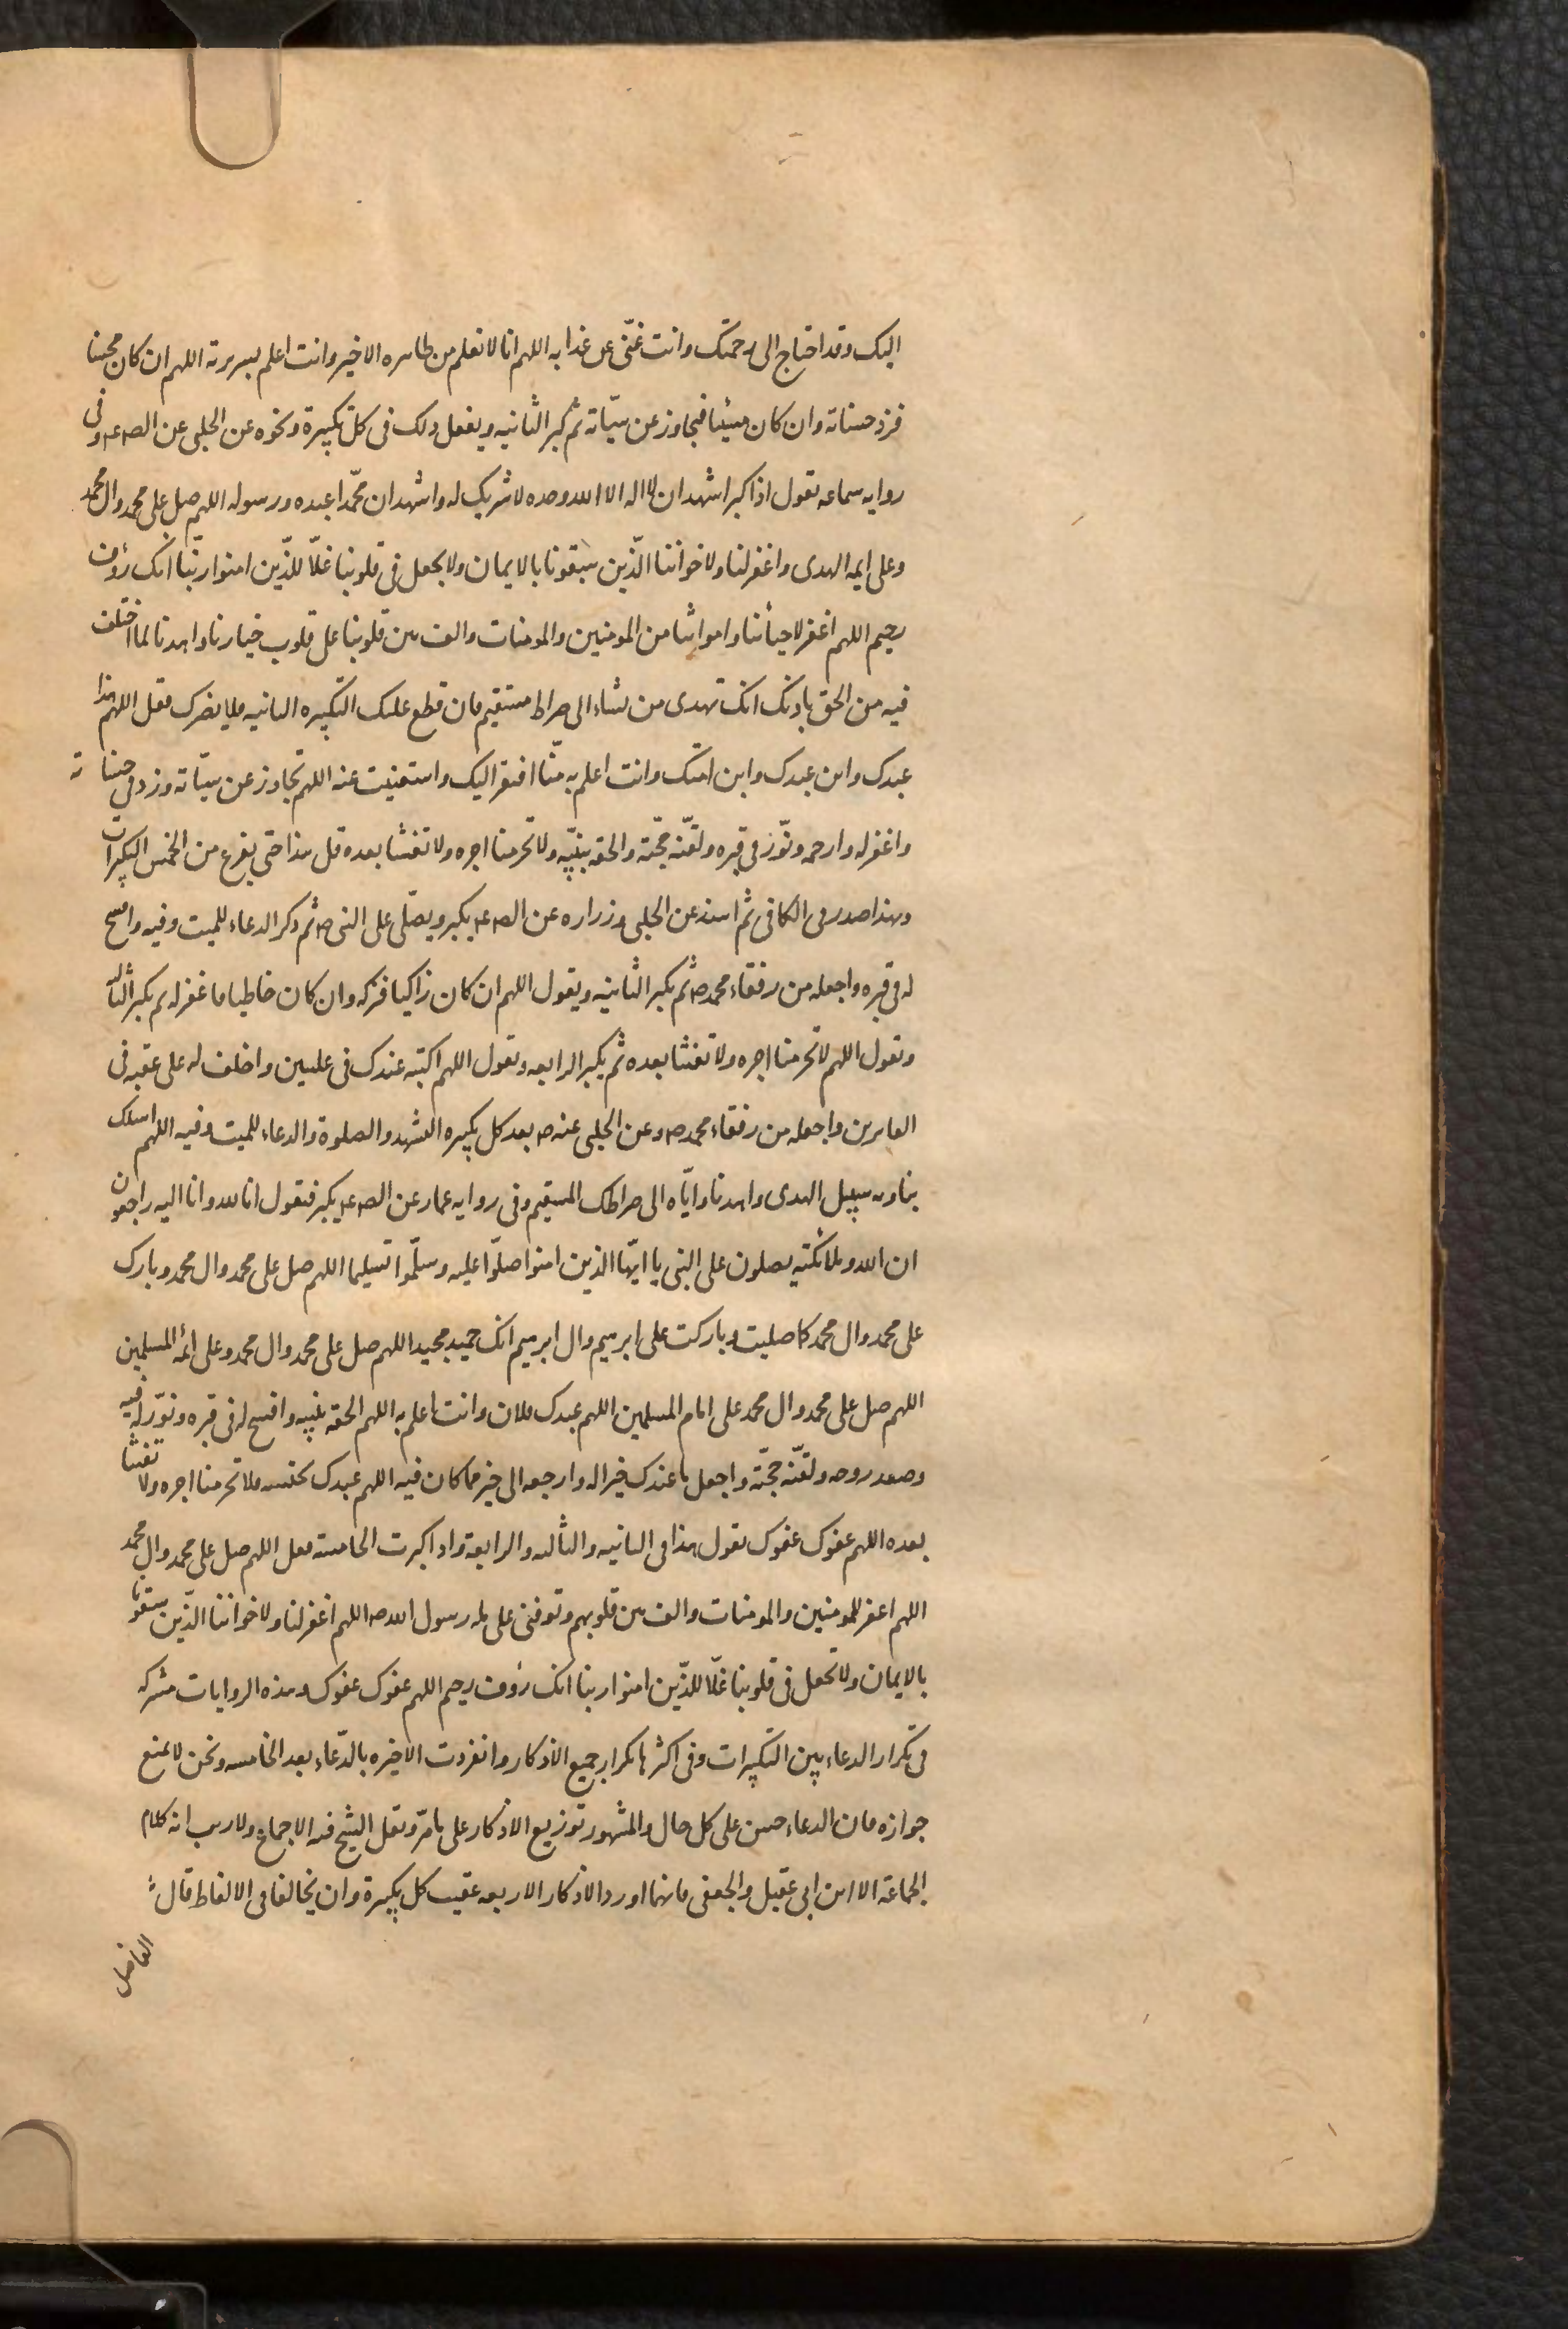 اليك وقد احتاج الى رحمتك وانت غنّى عن عذابه اللهم انا لا نعلم من ظاهره الا خيرا وانت اعلم بسريرته اللهم ان كان محسنا
فزد حسناته وان كان مسيئا فتجاوز عن سيّاته ثم كبر الثانيه ويفعل ذلك فى كل تكبيرة ونحوه عن الحلبى عن الص ع وفى
روايه سماعه تقول اذا كبر اشهد ان لا اله الا الله وحده لا شريك له واشهد ان محمّدا عبده ورسوله اللهم صل على محمد وال محمد
وعلى ايمه الهدى واغفر لنا ولاخواننا الّذين سبقونا بالايمان ولا تجعل فى قلوبنا غلّا للذّين امنوا ربّنا انك رؤف
رحيم اللهم اغفر لاحيائنا وامواتنا من المومنين والمومنات والف بين قلوبنا على قلوب خيارنا واهدنا لما اختلف
فيه من الحق باذنك انك تهدى من تشاء الى صراط مستقيم فان قطع عليك التكبيره الثانيه فلا يضرك فقل اللهم هذا
عبدك وابن عبدك وابن امتك وانت اعلم به منّا افتقر اليك واستغنيت عنه اللهم تجاوز عن سيّاته وزد فى حسناته
واغفر له وارحمه ونوّر فى قبره ولقّنه حجّته والحقه بنبيّه ولا تحرمنا اجره ولا تفتنا بعده قل هذا حتى يفرغ من الخمس التكبيرات
وهذا صدر فى الكافى ثم اسند عن الحلبى وزراره عن الص ع يكبر ويصلّى على النبى ص ثم ذكر الدعاء للميت وفيه وافسح
له فى قبره واجعله من رفقاء محمد ص ثم يكبر الثانيه ويقول اللهم ان كان زاكيا فزكه وان كان خاطيا فاغفر له ثم يكبر الثالثه
وتقول اللهم لا تحرمنا اجره ولا تفتنا بعده ثم يكبر الرابعه وتقول اللهم اكتبه عندك فى عليين واخلف له على عقبه فى
الغابرين واجعله من رفقاء محمد ص وعن الحلبى عنه ص بعد كل تكبيره التشهد والصلوة والدعاء للميت وفيه اللهم اسلك
بنا وبه سبيل الهدى واهدنا وايّاه الى صراطك المستقيم وفى روايه عمار عن الص ع يكبر فتقول انا لله وانا اليه راجعون
ان الله وملائكته يصلون على النبى يا ايّها الذين امنوا صلّوا عليه وسلّموا تسليما اللهم صل على محمد وال محمد وبارك
على محمد وال محمد كما صليت وباركت على ابرهيم وال ابرهيم انك حميد مجيد اللهم صل على محمد وال محمد وعلى ائمه المسلمين
اللهم صل على محمد وال محمد على امام المسلمين اللهم عبدك فلان وانت اعلم به اللهم الحقه بنبيه وافسح له فى قبره ونوّر له فيه
وصعد روحه ولقّنه حجّته واجعل ما عندك خيرا له وارجعه الى خير مما كان فيه اللهم عبدك نحتسبه فلا تحرمنا اجره ولا تفتنا
بعده اللهم عفوك عفوك تقول هذا فى الثانيه والثالثه والرابعة واذا كبرت الخامسه فقل اللهم صل على محمد وال محمد
اللهم اغفر للمومنين والمومنات والف بين قلوبهم وتوفنى على مله رسول الله ص اللهم اغفر لنا ولاخواننا الذّين سبقونا
بالايمان ولا تجعل فى قلوبنا غلّا للذّين امنوا ربنا انك رؤف رحيم اللهم عفوك عفوك وهذه الروايات مشتركه
فى تكرار الدعاء بين التكبيرات وفى اكثرها تكرار جميع الاذكار وانفردت الاخيره بالدّعاء بعد الخامسه ونحن لا نمنع
جوازه فان الدعاء حسن على كل حال والمشهور توزيع الاذكار على ما مرّ ونقل الشيخ فيه الاجماع ولا ريب انه كلام
الجماعة الا ابن ابى عقيل والجعفى فانهما اوردا الاذكار الاربعه عقيب كل تكبيرة وان تخالفا فى الالفاظ قال
الفاضل